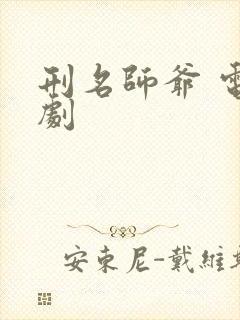 刑名師爺 電
劇
安東尼-戴維斯